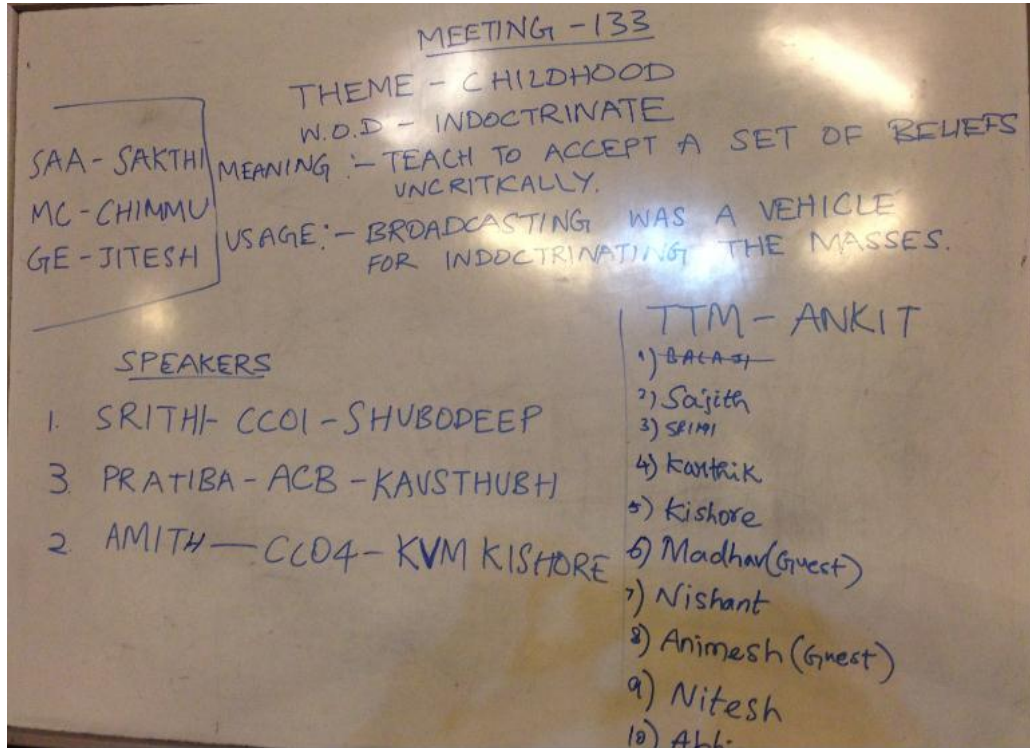 MEETING - 133
THEME - CHILDHOOD
W.O.D - INDOCTRINATE
MEANING :- TEACH TO ACCEPT A SET OF BELIEFS
UNCRITICALLY.
USAGE:- BROADCASTING WAS A VEHICLE
FOR INDOCTRINATING THE MASSES.
SAA - SAKTHI
MC - CHIMMU
GE - JITESH
SPEAKERS
1. SRITHI - CC01 - SHUBODEEP
3. PRATIBA - ACB - KAUSTHUBH
2. AMITH - CC04 - KVM KISHORE
TTM - ANKIT
1) BALAJI
2) Sajith
3) SRIMI
4) Karthik
5) Kishore
6) Madhav(Guest)
7) Nishant
8) Animesh (Guest)
9) Nitesh
10)